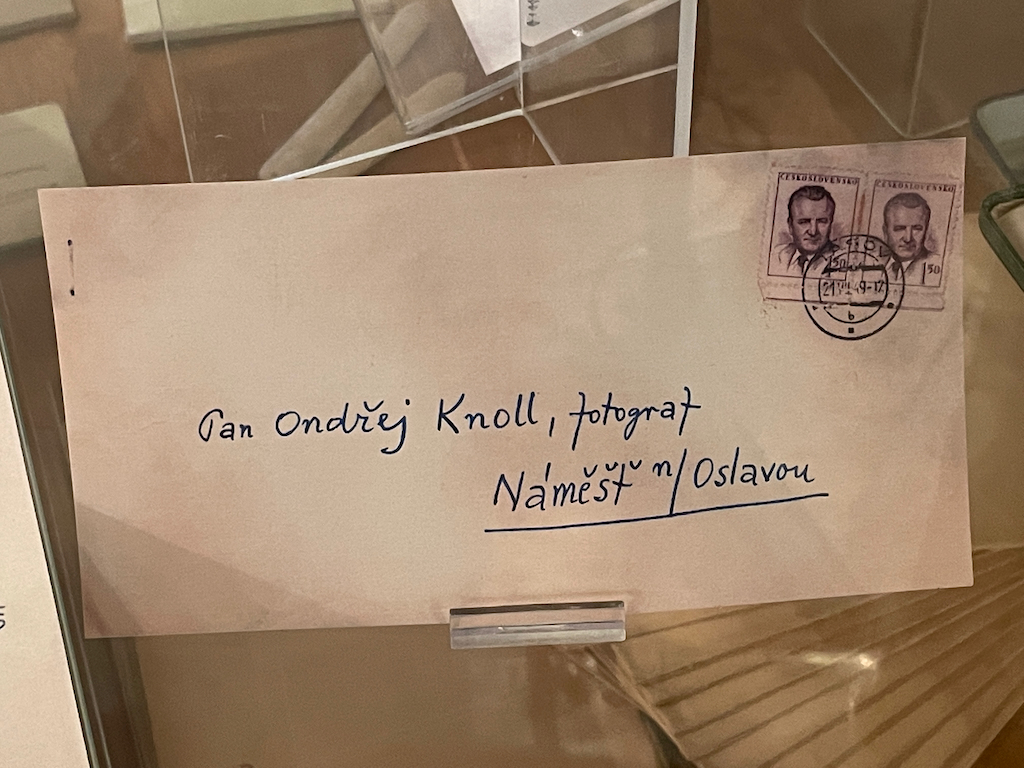 ČESKOSLOVENSKO ČESKOSLOVENSKO
150 150
Pan Ondřej Knoll, fotograf
Náměšť n/Oslavou